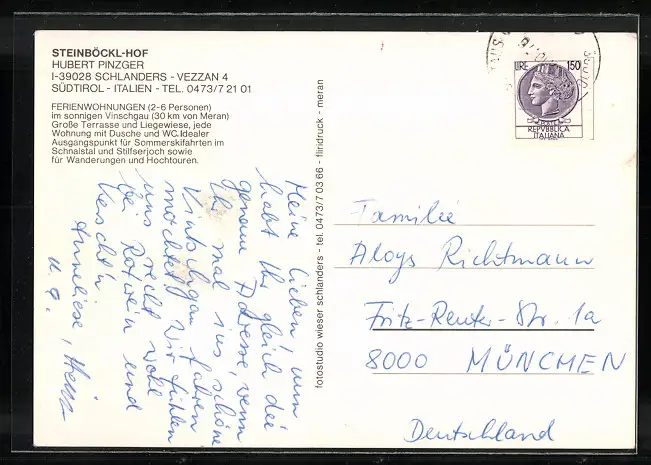 STEINBÖCKL-HOF
HUBERT PINZGER
I-39028 SCHLANDERS - VEZZAN 4
SÜDTIROL - ITALIEN - TEL. 0473/7 21 01
FERIENWOHNUNGEN (2-6 Personen)
im sonnigen Vinschgau (30 km von Meran)
Große Terrasse und Liegewiese, jede
Wohnung mit Dusche und WC. Idealer
Ausgangspunkt für Sommerskifahrten im
Schnalstal und Stilfserjoch sowie
für Wanderungen und Hochtouren.
Meine Lieben nun
habt Ihr gleich die
genaue Adresse, wenn
Ihr mal ins schöne
Vintschgau fahren
möchtet. Wir fühlen
uns recht wohl
bei Rotwein und
Annliese, Heinz
u. a.
fotostudio wieser schlanders - tel. 0473/7 03 66 - fliridruck - meran
LIRE 150
REPVBBLICA
ITALIANA
Familie
Aloys Richtmann
Fritz-Reuter-Str. 1a
8000 MÜNCHEN
Deutschland